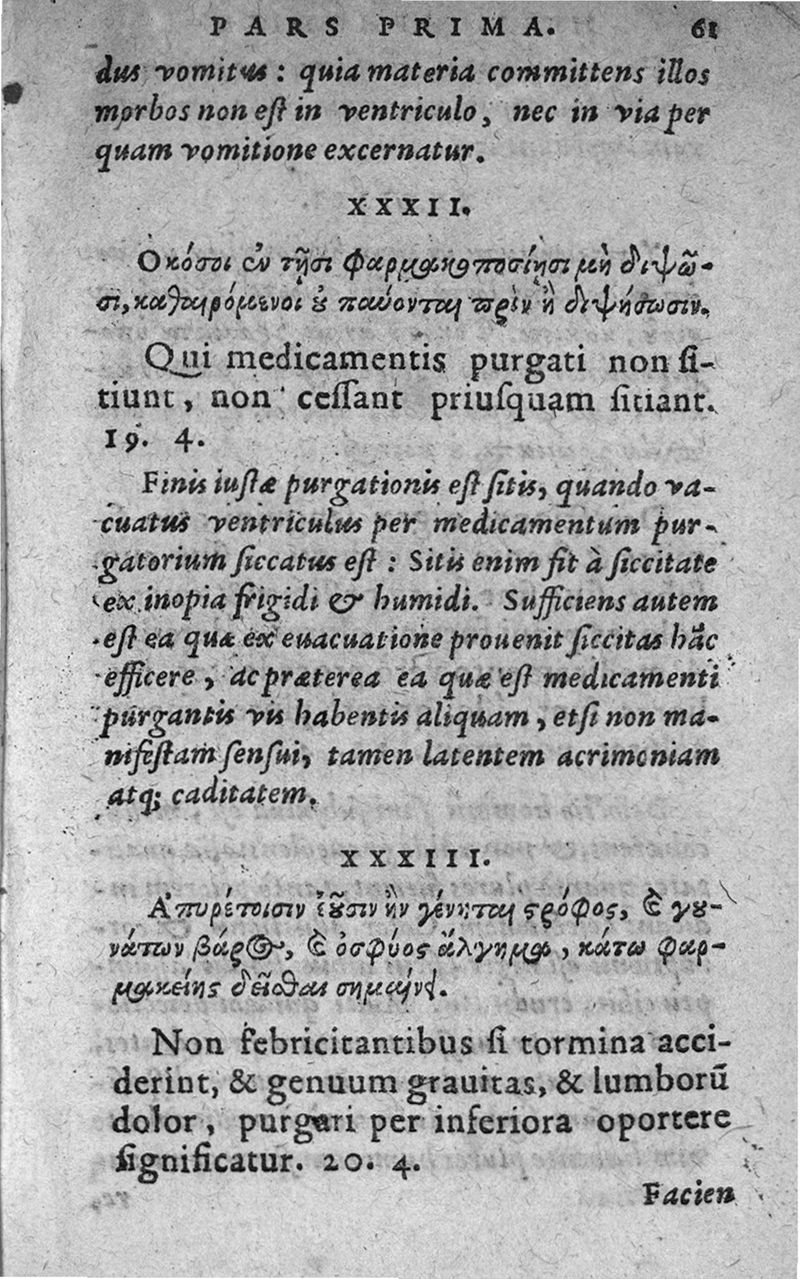 PARS PRIMA. 61
dus vomitus : quia materia committens illos
morbos non eſt in ventriculo, nec in via per
quam vomitione excernatur.
XXXII.
Οκόσοι ἐν τῇσι φαρμακοποσίῃσι μὴ διψῶ-
σι, καθαιρόμενοι ȣ παύονται πρὶν ἢ διψήσωσιν.
Qui medicamentis purgati non ſi-
tiunt, non ceſſant priuſquam ſitiant.
19. 4.
Finis iuſtæ purgationis eſt ſitis, quando va-
cuatus ventriculus per medicamentum pur-
gatorium ſiccatus eſt : Sitis enim fit à ſiccitate
ex inopia frigidi & humidi. Sufficiens autem
eſt ea quæ ex euacuatione prouenit ſiccitas hāc
efficere, ac præterea ea quæ eſt medicamenti
purgantis vis habentis aliquam, etſi non ma-
nifeſtam ſenſui, tamen latentem acrimoniam
atq; caditatem.
XXXIII.
Ἀπυρέτοισιν ἐȣ͂σιν ἢν γένηται ϛρόφος, ϗ γȣ-
νάτων βάρος, ϗ ὀσφύος ἄλγημα, κάτω φαρ-
μακείης δεῖσθαι σημαίνει.
Non febricitantibus ſi tormina acci-
derint, & genuum grauitas, & lumborū
dolor, purgari per inferiora oportere
ſignificatur. 20. 4.
Facien